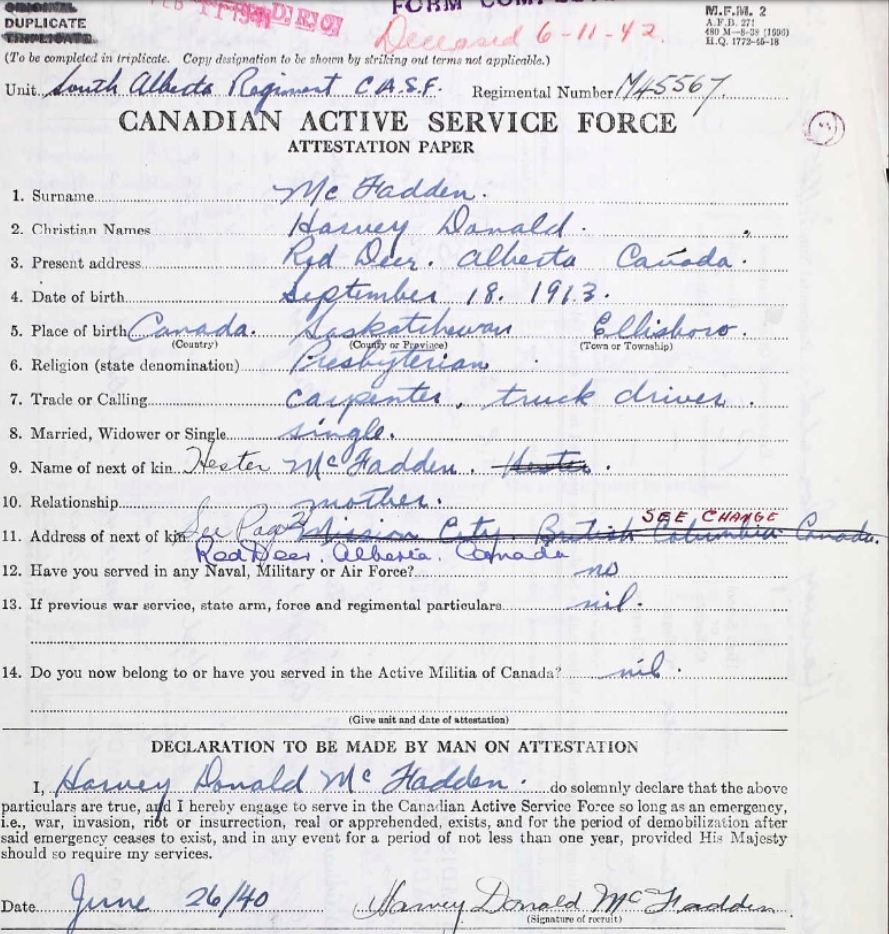 ORIGINAL
DUPLICATE
TRIPLICATE
Deceased 6-11-42.
M.F.M. 2
A.F.B. 271
480 M—8-39 (1596)
H.Q. 1772-45-18
(To be completed in triplicate. Copy designation to be shown by striking out terms not applicable.)
Unit South Alberta Regiment C.A.S.F. Regimental Number M45567
CANADIAN ACTIVE SERVICE FORCE
ATTESTATION PAPER
1. Surname Mc Fadden.
2. Christian Names Harvey Donald.
3. Present address Red Deer. Alberta Canada.
4. Date of birth September 18. 1913.
5. Place of birth Canada. Saskatchewan Ellisboro.
(Country) (County or Province) (Town or Township)
6. Religion (state denomination) Presbyterian
7. Trade or Calling carpenter, truck driver.
8. Married, Widower or Single single.
9. Name of next of kin Hester McFadden. Hester.
10. Relationship mother.
SEE CHANGE
11. Address of next of kin See Page 2 Mission City. British Columbia Canada.
Red Deer. Alberta. Canada
12. Have you served in any Naval, Military or Air Force? no
13. If previous war service, state arm, force and regimental particulars nil.
14. Do you now belong to or have you served in the Active Militia of Canada? nil.
(Give unit and date of attestation)
DECLARATION TO BE MADE BY MAN ON ATTESTATION
I, Harvey Donald Mc Fadden. do solemnly declare that the above
particulars are true, and I hereby engage to serve in the Canadian Active Service Force so long as an emergency,
i.e., war, invasion, riot or insurrection, real or apprehended, exists, and for the period of demobilization after
said emergency ceases to exist, and in any event for a period of not less than one year, provided His Majesty
should so require my services.
Date June 26/40 Harvey Donald McFadden
(Signature of recruit)